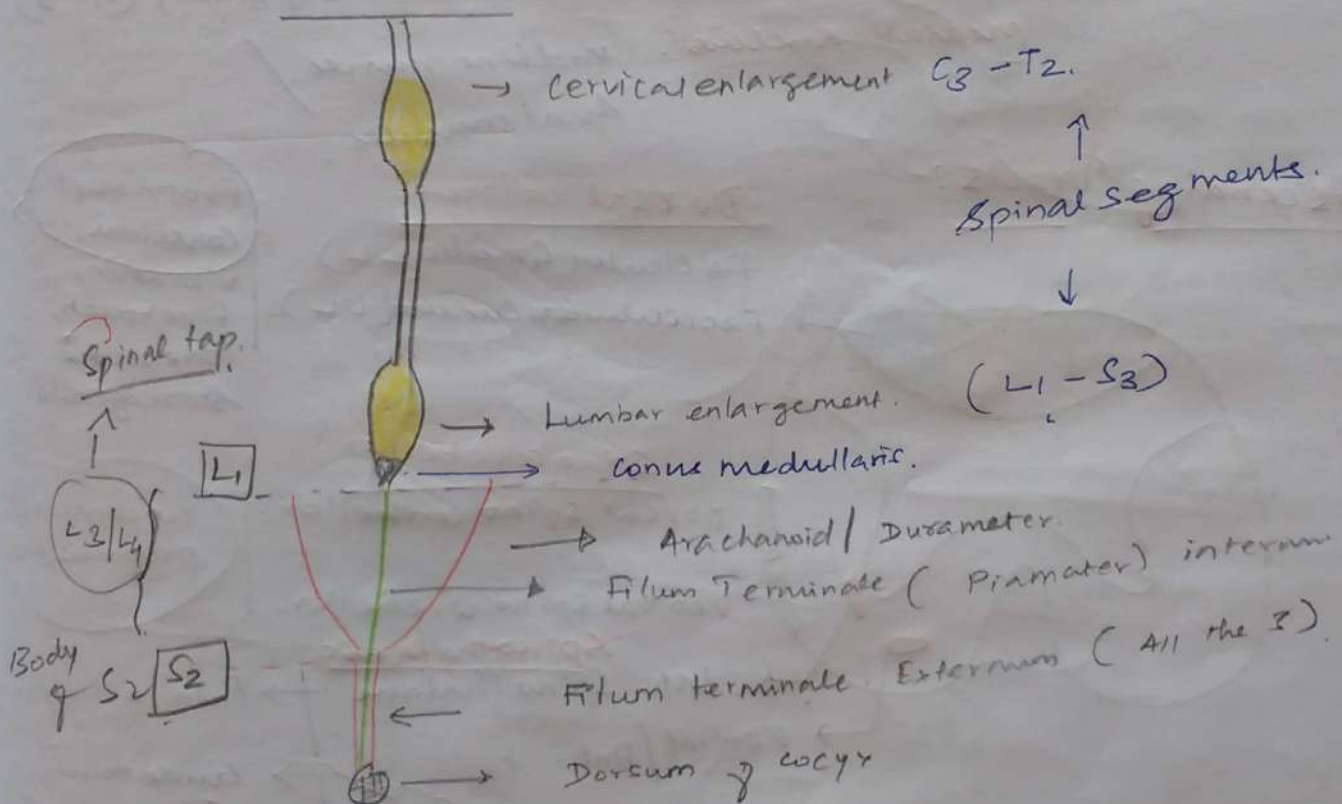 → Cervical enlargement C3 - T2.
↑
Spinal segments.
↓
Spinal tap.
↑
(L1 - S3)
→ Lumbar enlargement.
L1
→ conus medullaris.
L3/L4
→ Arachanoid / Durameter
→ Filum Terminale ( Piamater) internum
Body
of S2 S2
Filum terminale Externum ( All the 3)
←
→ Dorsum of cocyx